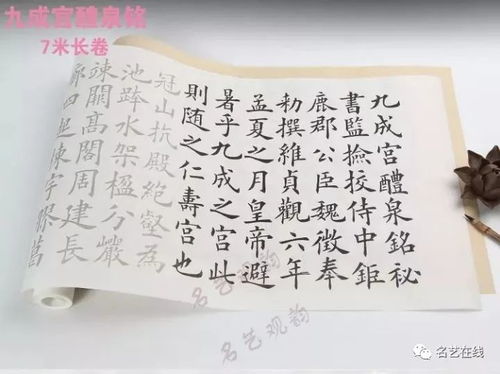 九成宫醴泉铭
7米长卷
九成宫醴泉銘秘
書監撿挍侍中鉅
鹿郡公臣魏徵奉
勑撰維貞觀六年
孟夏之月皇帝避
暑乎九成之宫此
則随之仁壽宫也
冠山抗殿絶壑為
池跨水架楹分巖
竦闕高閣周建長
廊四起棟宇膠葛
名艺观韵
名艺观韵
名艺在线